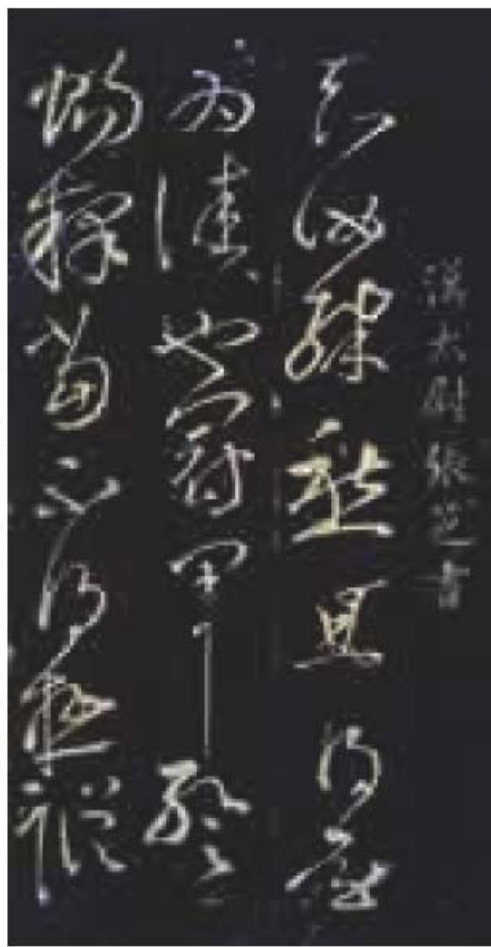 漢太尉張芝書
知汝殊愁且得還
為佳也冠軍暫
暢釋當不得極蹤